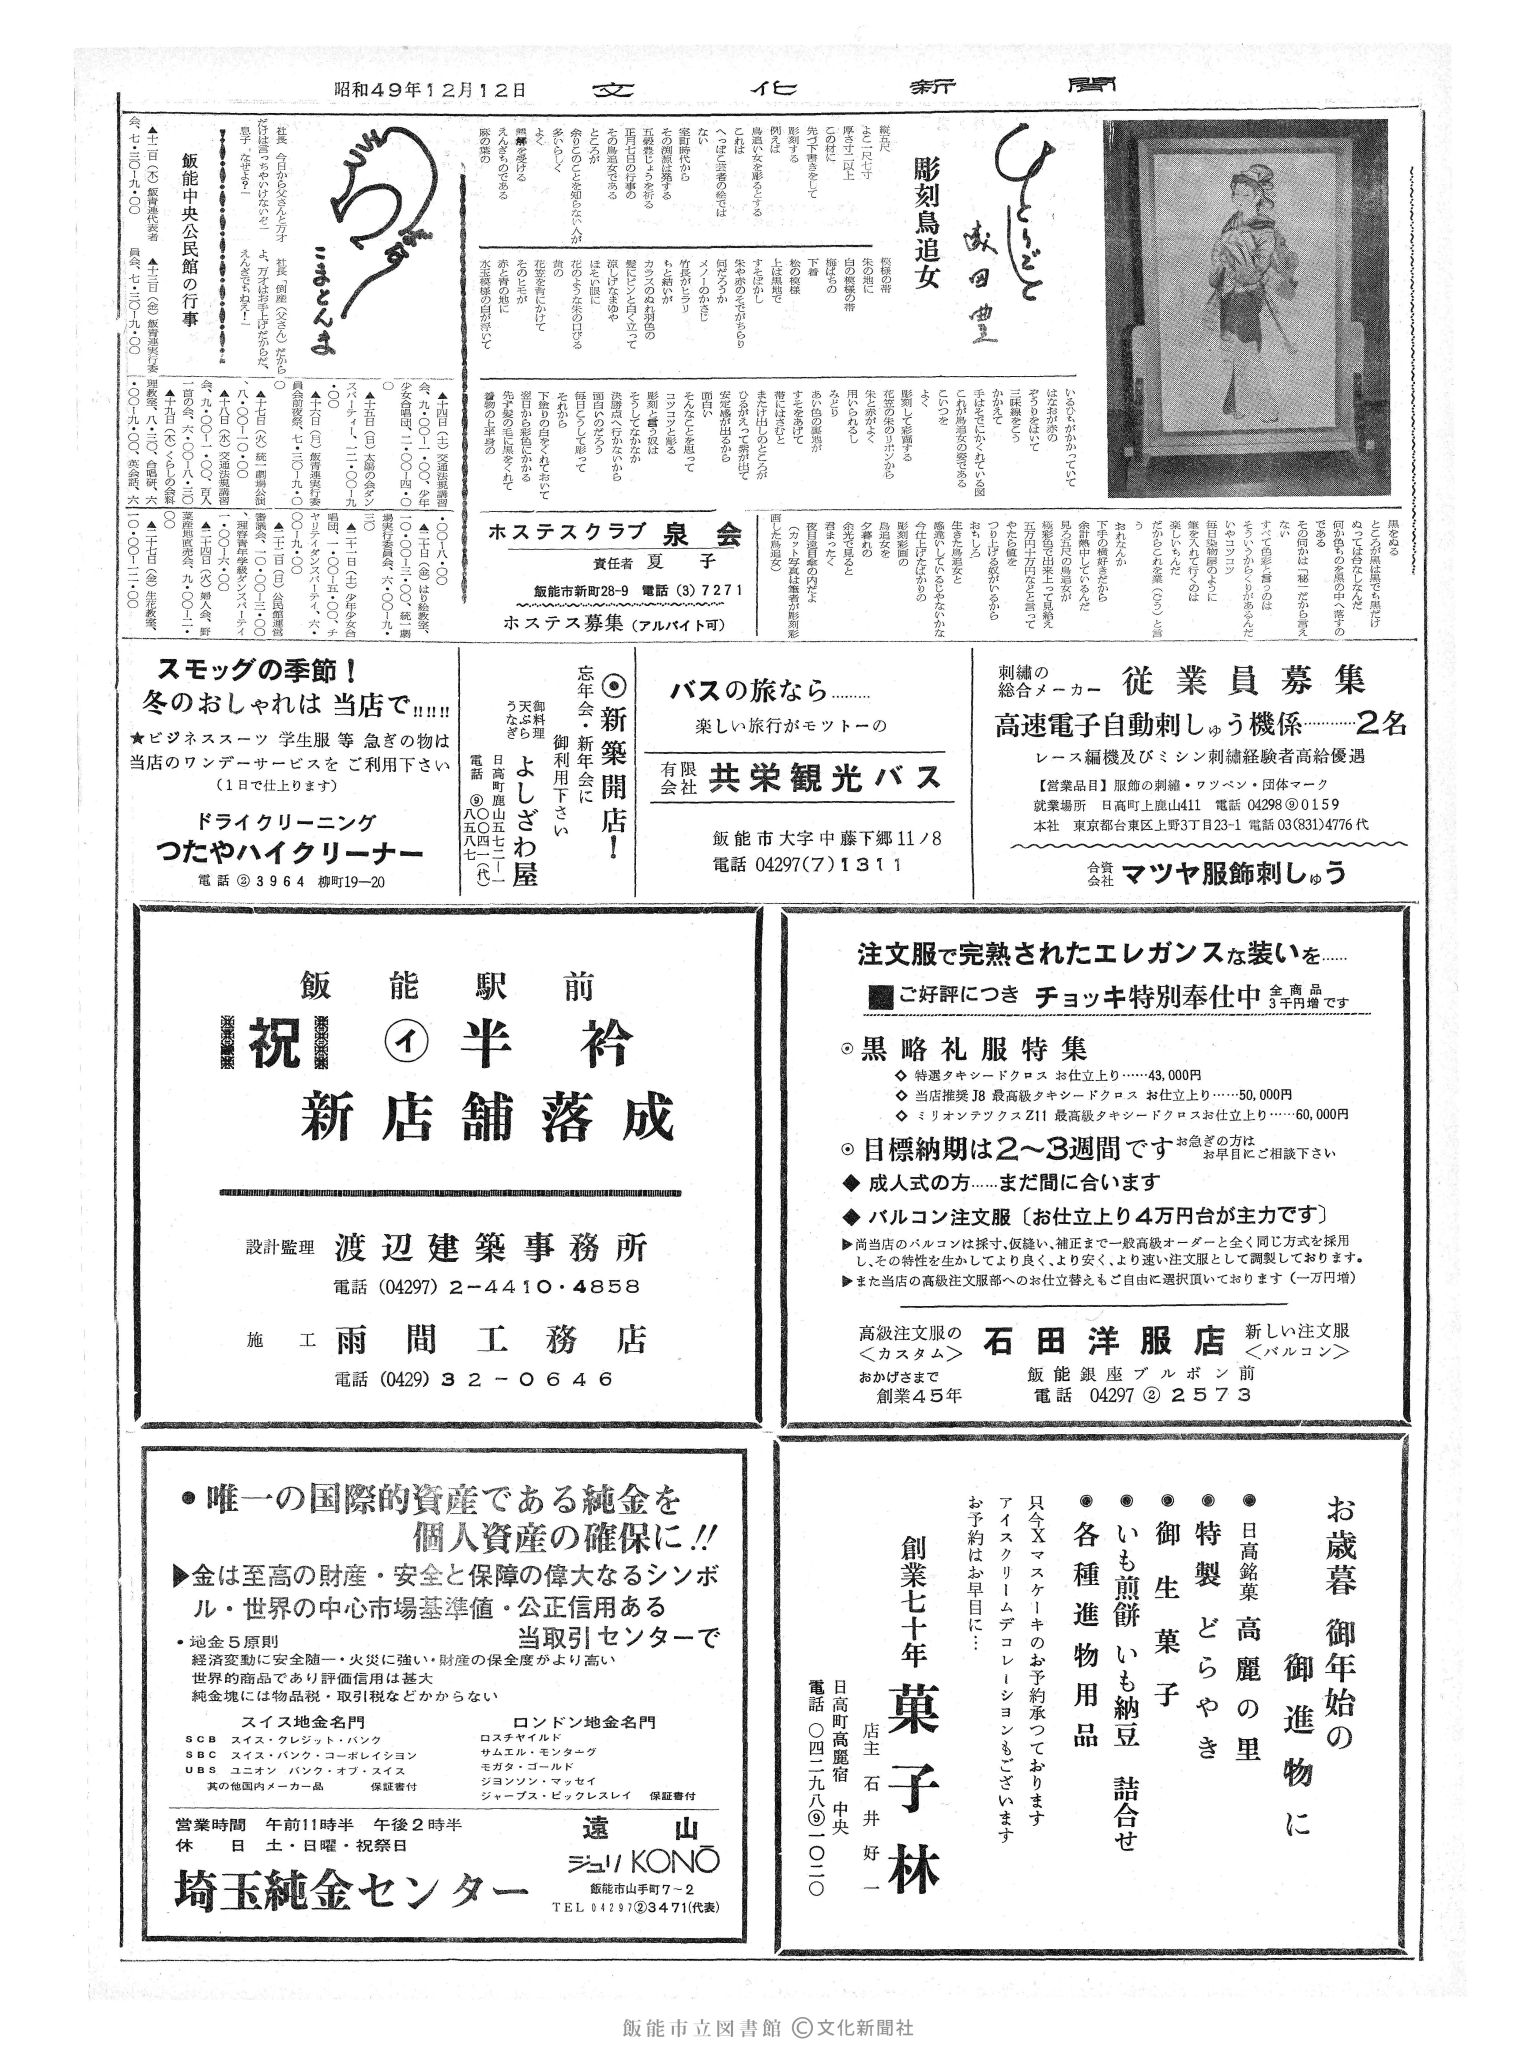 昭和49年12月12日 文化新聞
ひとりごと
彫刻鳥追女
縦五尺
よこ一尺七寸
厚さ寸二以上
この材に
先づ下書きをして
彫刻する
例えば
鳥追い女を彫るとする
これは
へっぽこ芸者の絵では
ない
室町時代から
その渕源は発する
五穀豊じょうを祈る
正月七日の行事の
その鳥追女である
ところが
余りこのことを知らない人が
多いらしく
よく
誤解を受ける
えんぎものである
麻の葉の
模様の帯
朱の地に
白の模様の帯
梅ばちの
下着
松の模様
上は黒地で
すそぼかし
朱や赤のそでがちらり
何だろうか
メノーのかさじ
竹長がヒラリ
ちと結いが
カラスのぬれ羽色の
髪にピンと白く立って
涼しげなまゆや
ほそい眼に
花のような朱の口びる
黄の
花笠を背にかけて
そのヒモが
赤と青の地に
水玉模様の白が浮いて
いるひもがかかっていて
はなおが赤の
ぞうりをはいて
三味線をこう
かかえて
手はそでにかくれている図
これが鳥追女の姿である
こいつを
よく
彫刻して彩画する
花笠の朱のリボンから
朱と赤がよく
用いられるし
みどり
あい色の裏地が
すそをあげて
帯にはさむと
またけ出しのところが
ひるがえって紫が出て
安定感が出るから
面白い
そんなことを思って
コツコツと彫る
彫刻と言う奴は
そうしてなかなか
決勝点へ行かないから
面白いのだろう
毎日こうして彫って
それから
下塗りの白をくれておいて
翌日から彩色にかかる
先ず髪の毛に黒をくれて
着物の上半身の
黒をぬる
ところが黒は黒でも黒だけ
ぬっては台なしなんだ
何か色ものを黒の中へ落すの
である
その何かは「秘」だから言え
ない
すべて色彩と言うのは
そういうからくりがあるんだ
いやコツコツ
毎日染物師のように
筆を入れて行くのは
楽しいもんだ
だからこれを業(ごう)と言
う
おれなんか
下手の横好きだから
余計熱中しているんだ
見ろ五尺の鳥追女が
極彩色で出来上って見給え
五万円十万円などと言って
やたら値を
つり上げる奴がいるから
おもしろ
生きた鳥追女と
感違いしているじゃないかな
今仕上げたばかりの
彫刻彩画の
鳥追女を
夕暮れの
余光で見ると
君まったく
夜目遠目傘の内だよ
(カット写真は筆者が彫刻彩
画した鳥追女)
こまとんま
社長 今日から父さんと万才
だけは言っちゃいけないぞ―
息子 なぜよ?―
社長「倒産(父さん)だから
よ、万才はお手上げだからだ、
えんぎでもねえ!―
飯能中央公民館の行事
▲十二日(木)飯青連代表者
会、七・三〇―九・〇〇
▲十三日(金)飯青連実行委
員会、七・三〇―九・〇〇
▲十四日(土)交通法規講習
会、九・〇〇―一・〇〇、少年
少女合唱団、二・〇〇―四・〇
〇
▲十五日(日)太陽の会ダン
スパーティー、一二・〇〇―九
・〇〇
▲十六日(月)飯青連実行委
員会前夜祭、七・三〇―九・〇
〇
▲十七日(火)統一劇場公演
、八・〇〇―一〇・〇〇
▲十八日(水)交通法規講習
会、九・〇〇―一・〇〇、百人
一首の会、六・〇〇―八・三〇
▲十九日(木)くらしの会料
理教室、八・三〇、合唱研、六
・〇〇―九・〇〇、英会話、六
・〇〇―八・〇〇
▲二十日(金)はり絵教室、
一〇・〇〇―三・〇〇、統一劇
場実行委員会、六・〇〇―九・
三〇
▲二十一日(土)少年少女合
唱団、一・〇〇―五・〇〇、チ
ャリティダンスパーティ、六・
〇〇―九・〇〇
▲二十二日(日)公民館運営
審議会、一〇・〇〇―三・〇〇
、理容青年学級ダンスパーティ
一・〇〇―六・〇〇
▲二十四日(火)婦人会、野
菜産地直売会、九・〇〇―二・
〇〇
▲二十七日(金)生花教室、
一〇・〇〇―一二・〇〇
ホステスクラブ 泉会
責任者 夏子
飯能市新町28-9 電話(3)7271
ホステス募集(アルバイト可)
スモッグの季節!
冬のおしゃれは 当店で!!!!!!
★ビジネススーツ 学生服 等 急ぎの物は
当店のワンデーサービスを ご利用下さい
(1日で仕上ります)
ドライクリーニング
つたやハイクリーナー
電話②3964 柳町19―20
◉新築開店!
忘年会・新年会に
御利用下さい
御料理
天ぷら
うなぎ
よしざわ屋
日高町鹿山五七二―一
電話 ⑨〇〇四一(代)
八五八七
バスの旅なら………
楽しい旅行がモツトーの
有限会社 共栄観光バス
飯能市大字中藤下郷11ノ8
電話 04297(7)1311
刺繡の
総合メーカー 従業員募集
高速電子自動刺しゅう機係…………2名
レース編機及びミシン刺繡経験者高給優遇
【営業品目】服飾の刺繡・ワツペン・団体マーク
就業場所 日高町上鹿山411 電話 04298⑨0159
本社 東京都台東区上野3丁目23-1 電話03(831)4776代
合資会社 マツヤ服飾刺しゅう
飯能駅前
祝 ㋑半衿
新店舗落成
設計監理 渡辺建築事務所
電話(04297)2-4410・4858
施工 雨間工務店
電話(0429)32-0646
注文服で完熟されたエレガンスな装いを……
■ご好評につき チョッキ特別奉仕中 全商品3千円増です
◉黒略礼服特集
◇特選タキシードクロス お仕立上り……43,000円
◇当店推奨J8 最高級タキシードクロス お仕立上り……50,000円
◇ミリオンテツクスZ11 最高級タキシードクロスお仕立上り……60,000円
◉目標納期は2〜3週間です お急ぎの方はお早目にご相談下さい
◆成人式の方……まだ間に合います
◆バルコン注文服〔お仕立上り4万円台が主力です〕
▶尚当店のバルコンは採寸、仮縫い、補正まで一般高級オーダーと全く同じ方式を採用
し、その特性を生かしてより良く、より安く、より速い注文服として調製しております。
▶また当店の高級注文服部へのお仕立替えもご自由に選択頂いております(一万円増)
高級注文服の
<カスタム>
石田洋服店
新しい注文服
<バルコン>
おかげさまで
創業45年
飯能銀座ブルボン前
電話 04297②2573
●唯一の国際的資産である純金を
個人資産の確保に!!
▶金は至高の財産・安全と保障の偉大なるシンボ
ル・世界の中心市場基準値・公正信用ある
当取引センターで
・地金5原則
経済変動に安全随一・火災に強い・財産の保全度がより高い
世界的商品であり評価信用は甚大
純金塊には物品税・取引税などかからない
スイス地金名門
SCB スイス・クレジット・バンク
SBC スイス・バンク・コーポレイション
UBS ユニオン バンク・オブ・スイス
其の他国内メーカー品 保証書付
ロンドン地金名門
ロスチャイルド
サムエル・モンターグ
モガタ・ゴールド
ジョンソン・マッセイ
ジャープス・ピックレスレイ 保証書付
営業時間 午前11時半 午後2時半
休日 土・日曜・祝祭日
埼玉純金センター
遠山
ジュリ KONŌ
飯能市山手町7〜2
TEL 04297②3471(代表)
お歳暮 御年始の
御進物に
●日高銘菓 高麗の里
●特製どらやき
●御生菓子
●いも煎餅 いも納豆 詰合せ
●各種進物用品
只今Xマスケーキのお予約承つております
アイスクリームデコレーションもございます
お予約はお早目に…
創業七十年 菓子林
店主 石井好一
日高町高麗宿 中央
電話 〇四二九八⑨一〇二〇
飯能市立図書館 ©文化新聞社